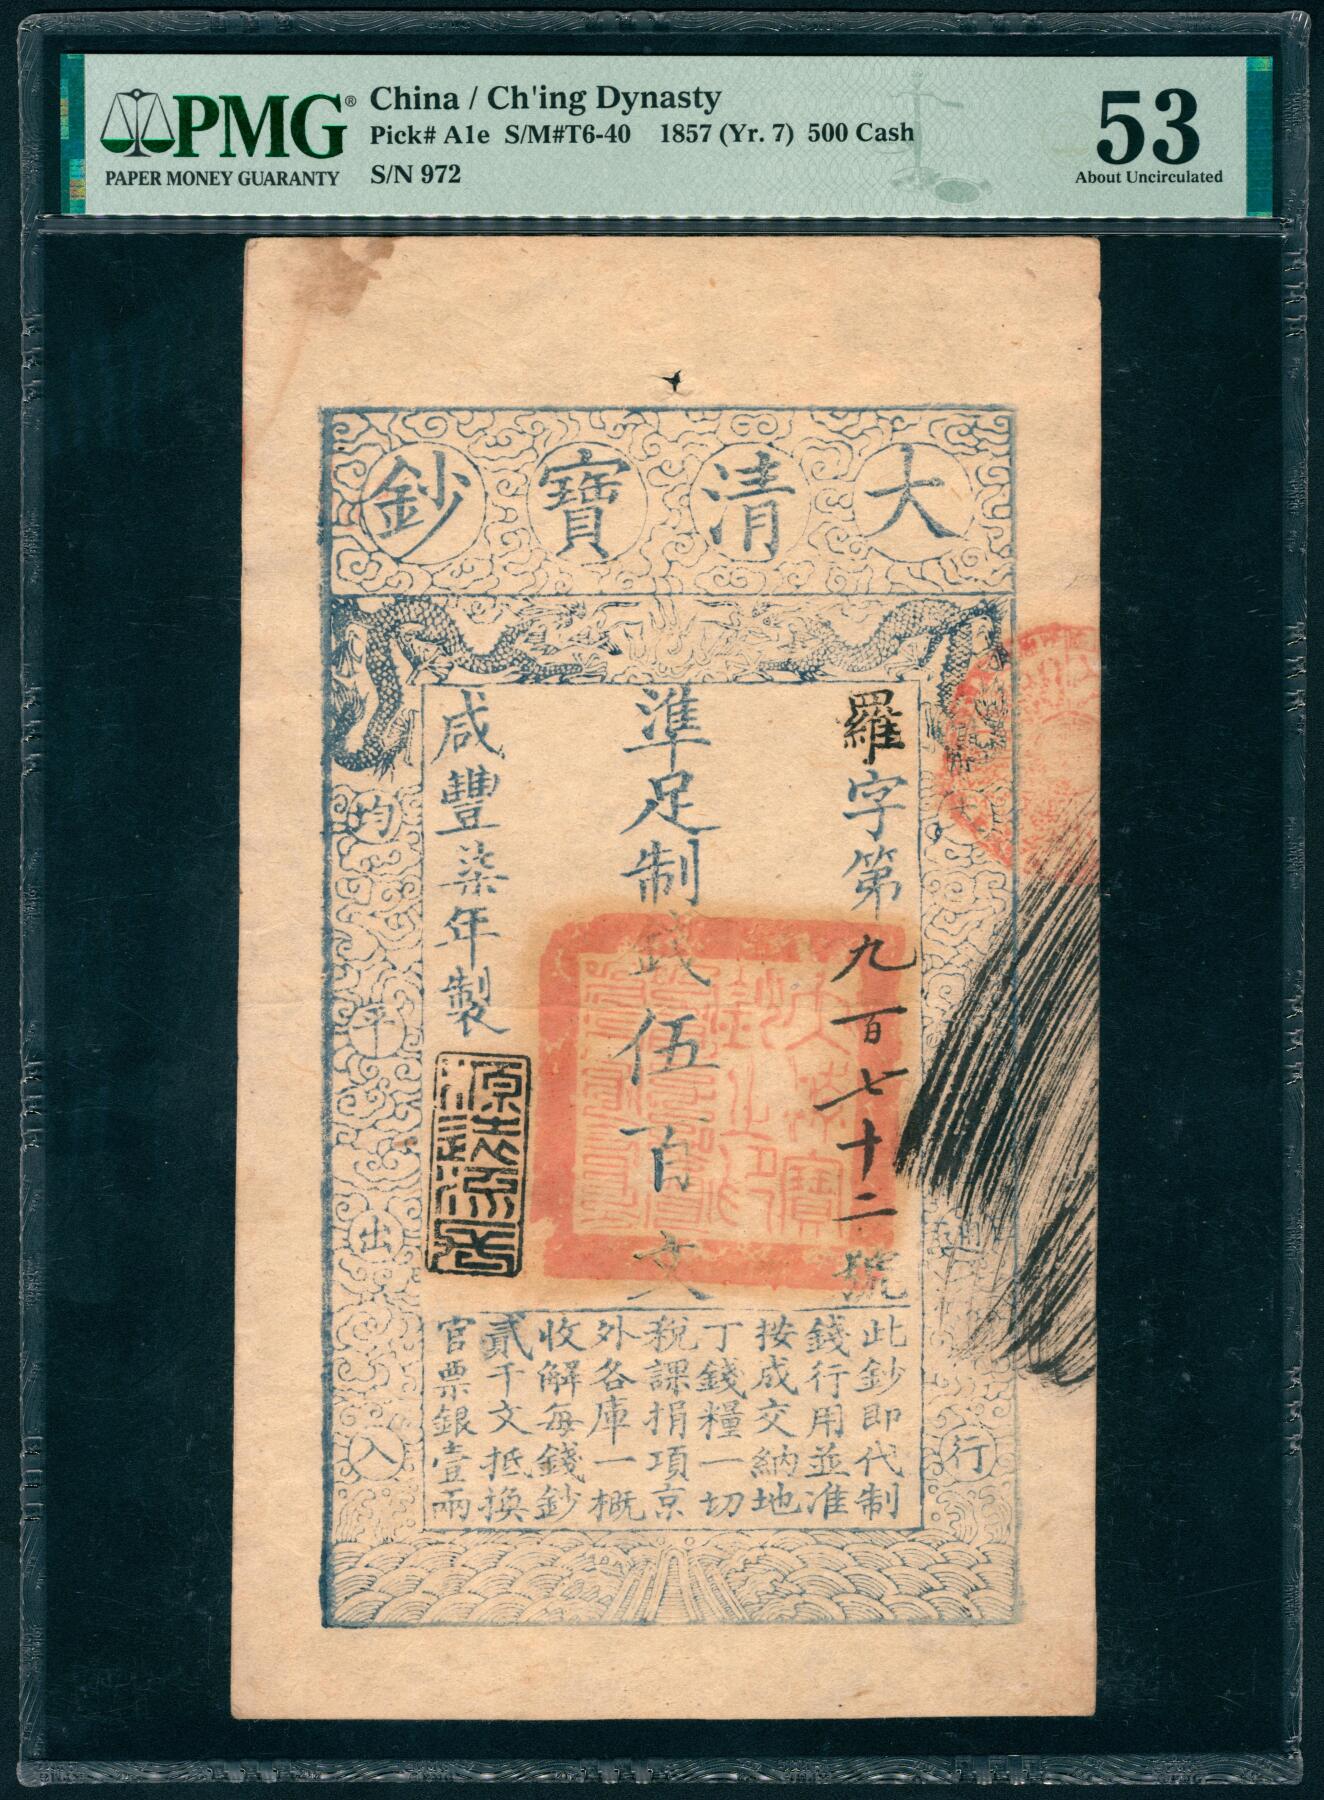 PMG®
PAPER MONEY GUARANTY
China / Ch'ing Dynasty
Pick# A1e S/M#T6-40 1857 (Yr. 7) 500 Cash
S/N 972
53
About Uncirculated
大清寶鈔
羅字第九百七十二號
準足制錢伍百文
咸豐柒年製
源遠流長
大清寶
鈔之印
均平出入
行
此鈔即代制
錢行用並准
按成交納地
丁錢糧一切
稅課捐項京
外各庫一概
收解每錢鈔
貳千文抵換
官票銀壹兩